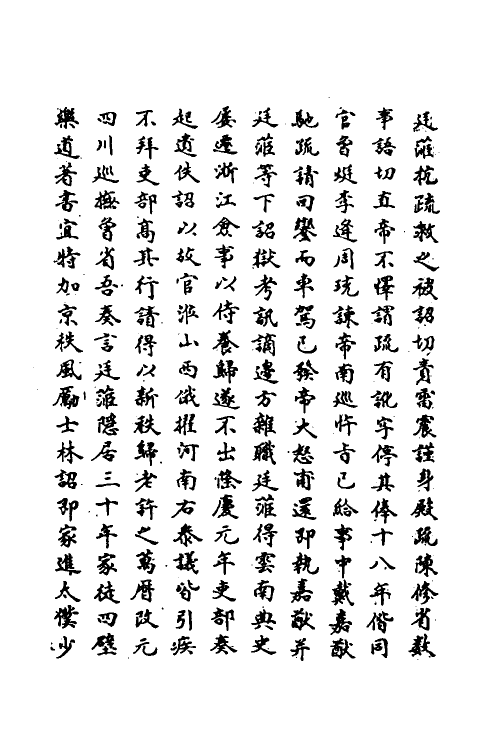 廷蓷抗疏救之被詔切責雷震謹身殿疏陳修省數
事語切直帝不懌謂疏有訛字停其俸十八年偕同
官曾烶李逢周珫諫帝南巡忤旨已給事中戴嘉猷
馳疏請回鑾而車駕已發帝大怒甫還即執嘉猷并
廷蓷等下詔獄考訊謫邊方雜職廷蓷得雲南典史
屢遷浙江僉事以侍養歸遂不出隆慶元年吏部奏
起遺佚詔以故官涖山西俄擢河南右叅議皆引疾
不拜吏部髙其行請得以新秩歸老許之萬厯改元
四川巡撫曾省吾奏言廷蓷隠居三十年家徒四壁
樂道著書宜特加京秩風勵士林詔即家進太僕少